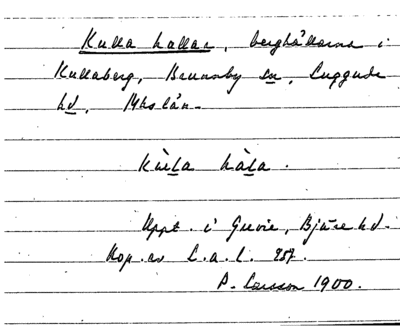 Kulla hallar, berghällarna i
Kullaberg, Brunnby sn, Luggude
hd, Mhs län.
Kùl̲a hàl̲a.
Uppt. i Grevie, Bjäre hd.
Kop. av L.a.l. 257.
P. Larsson 1900.